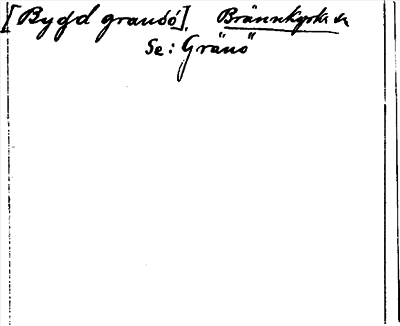 [Bygd grausó], Brännkyrka sn
Se: Gränö